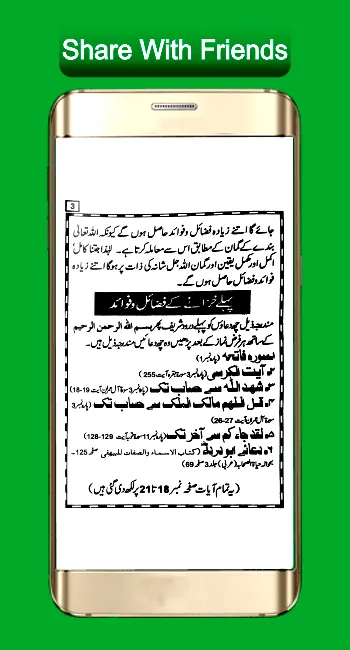 Share With Friends
3
جائے گا اتنے زیادہ فضائل و فوائد حاصل ہوں گے کیونکہ اللہ تعالیٰ
بندے کے گمان کے مطابق اس سے معاملہ کرتا ہے۔ لہٰذا جتنا کامل
اکمل اور مکمل یقین اور گمان اللہ جل شانہ کی ذات پر ہوگا اتنے زیادہ
فوائد و فضائل حاصل ہوں گے۔
پہلے خزانے کے فضائل و فوائد
مندرجہ ذیل چھ دعاؤں کو پہلے درود شریف، پھر بسم اللہ الرحمن الرحیم
کے ساتھ ہر فرض نماز کے بعد پڑھیں وہ چھ دعائیں مندرجہ ذیل ہیں۔
۱۔ سورہ فاتحہ (پارہ نمبر 1)
۲۔ آیت الکرسی (پارہ نمبر 3 سورۃ بقرہ آیت 255)
۳۔ شھد اللہ سے حساب تک (پارہ نمبر 3 سورۃ آل عمران آیت 19-18)
۴۔ قل اللھم مالک الملک سے حساب تک (پارہ نمبر 3
سورۃ آل عمران آیت 27-26)
۵۔ لقد جاء کم سے آخر تک (پارہ نمبر 11 سورۃ توبہ آیت 129-128)
۶۔ دعائے ابو درداءؓ (کتاب الاسماء والصفات للبیھقی صفحہ 125۔
بحوالہ حیاۃ الصحابہ (عربی) جلد 3 صفحہ 69)
(یہ تمام آیات صفحہ نمبر 18 تا 21 پر لکھ دی گئی ہیں)